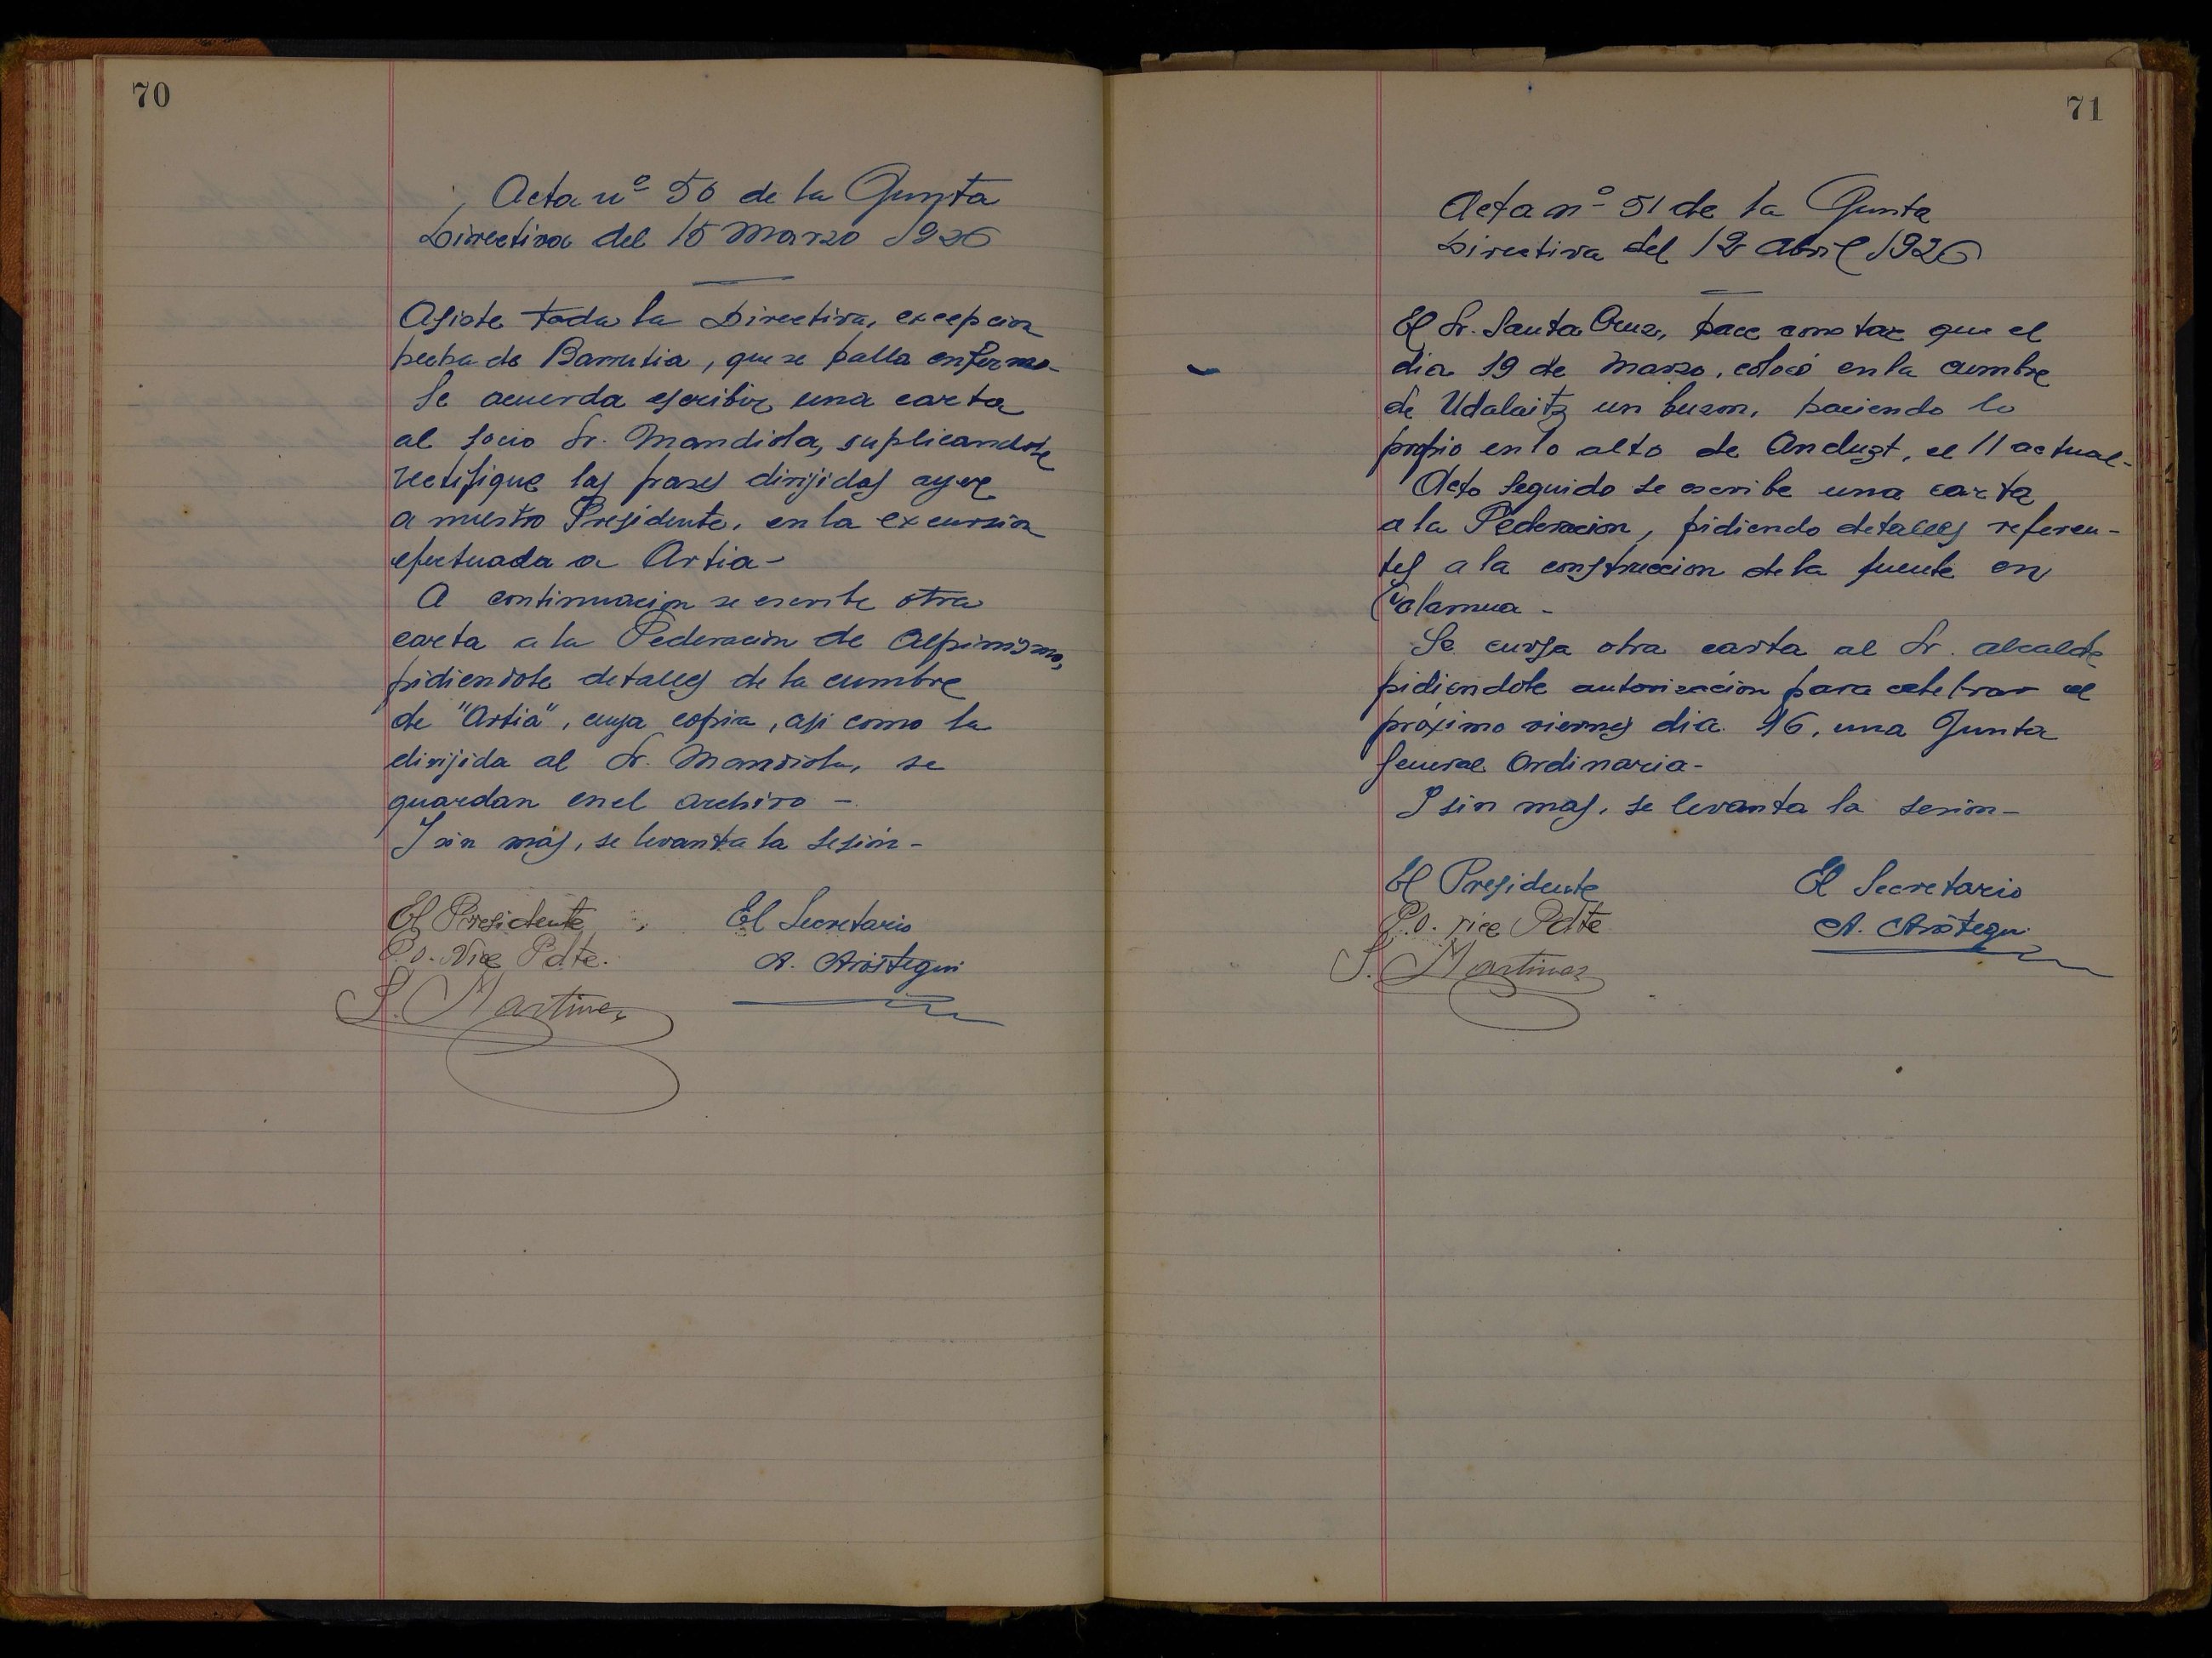 70
Acta nº 50 de la Junta
Directiva del 15 Marzo 1926
Asiste toda la Directiva, excepcion
hecha de Barrutia, que se halla enfermo-
Se acuerda escribir una carta
al socio Sr. Mandiola, suplicandole
rectifique las frases dirijidas ayer
a nuestro Presidente, en la excursion
efectuada a Artia-
A continuacion se escribe otra
carta a la Federacion de Alpinismo,
pidiendole detalles de la cumbre
de "Artia", cuya copia, asi como la
dirijida al Sr. Mandiola, se
guardan en el archivo -
I sin más, se levanta la sesión-
El Presidente
P.O. Vice Pdte.
S. Martinez
El Secretario
A. Aróstegui
71
Acta nº 51 de la Junta
Directiva del 12 Abril 1926
El Sr. Santa Cruz, hace constar que el
dia 19 de Marzo, colocó en la cumbre
de Udalaitz un buzon, haciendo lo
propio en lo alto de Anduzt, el 11 actual-
Acto seguido se escribe una carta
a la Federacion, pidiendo detalles referen-
tes a la construccion de la fuente en
Calamua -
Se cursa otra carta al Sr. alcalde
pidiendole autorización para celebrar el
próximo viernes dia 16, una Junta
General Ordinaria-
I sin mas, se levanta la sesion-
El Presidente
P.O. vice Pdte
S. Martinez
El Secretario
A. Aróstegui